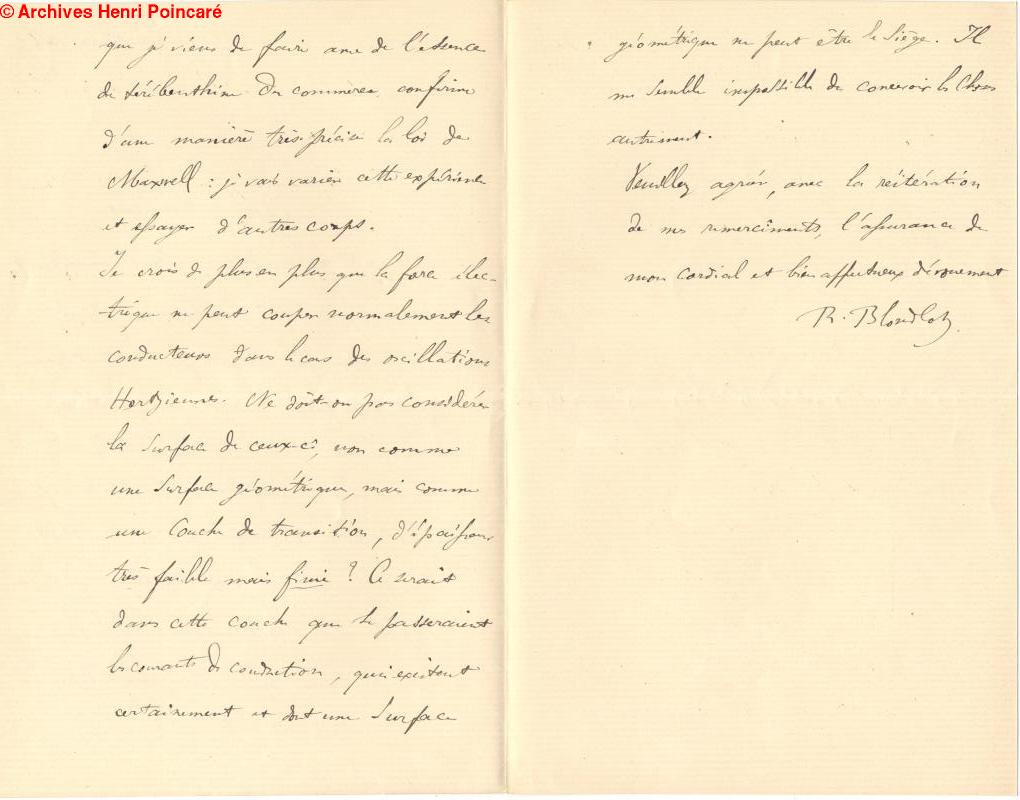 © Archives Henri Poincaré
que je viens de faire avec de l'essence
de térébenthine du commerce confirme
d'une manière très-précise la loi de
Maxwell : je vais varier cette expérience
et essayer d'autres corps.
Je crois de plus en plus que la force élec-
trique ne peut couper normalement les
conducteurs dans le cas des oscillations
Hertziennes. Ne doit-on pas considérer
la surface de ceux-ci, non comme
une surface géométrique, mais comme
une couche de transition, d'épaisseur
très faible mais finie ? Ce serait
dans cette couche que se passeraient
les courants de conduction, qui existent
certainement et dont une surface
géométrique ne peut être le siège. Il
me semble impossible de concevoir les choses
autrement.
Veuillez agréer, avec la réitération
de mes remerciments, l'assurance de
mon cordial et bien affectueux dévouement
R. Blondlot